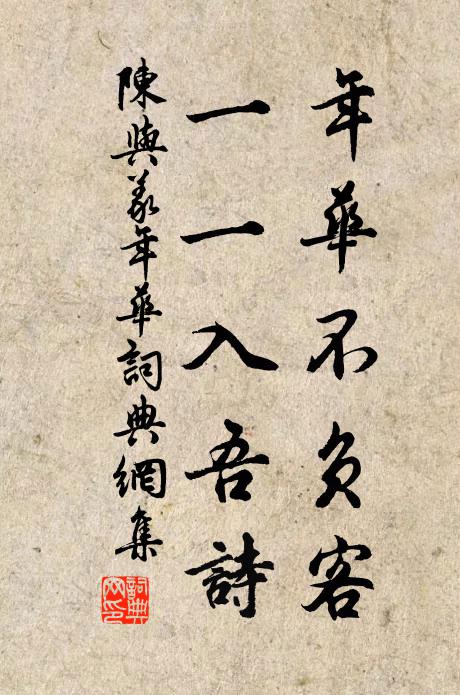 年華不負客
一一入吾詩
陳與義年華詞典網集
詞典
网印